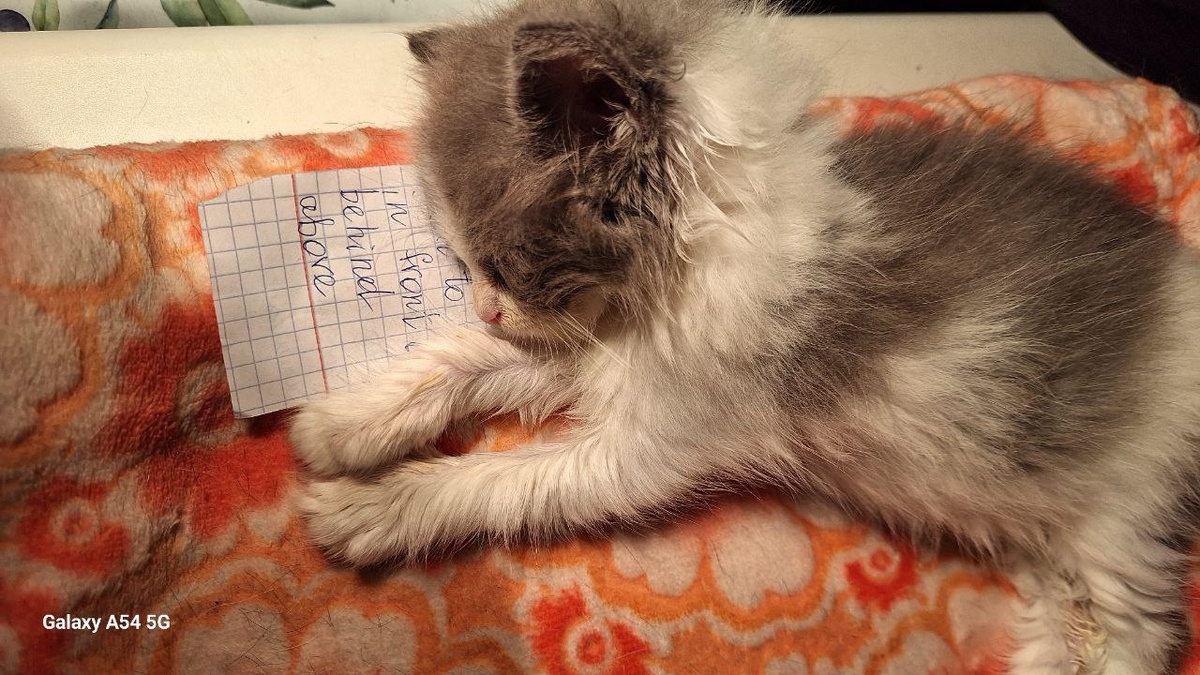 to
in front
behind
above
Galaxy A54 5G